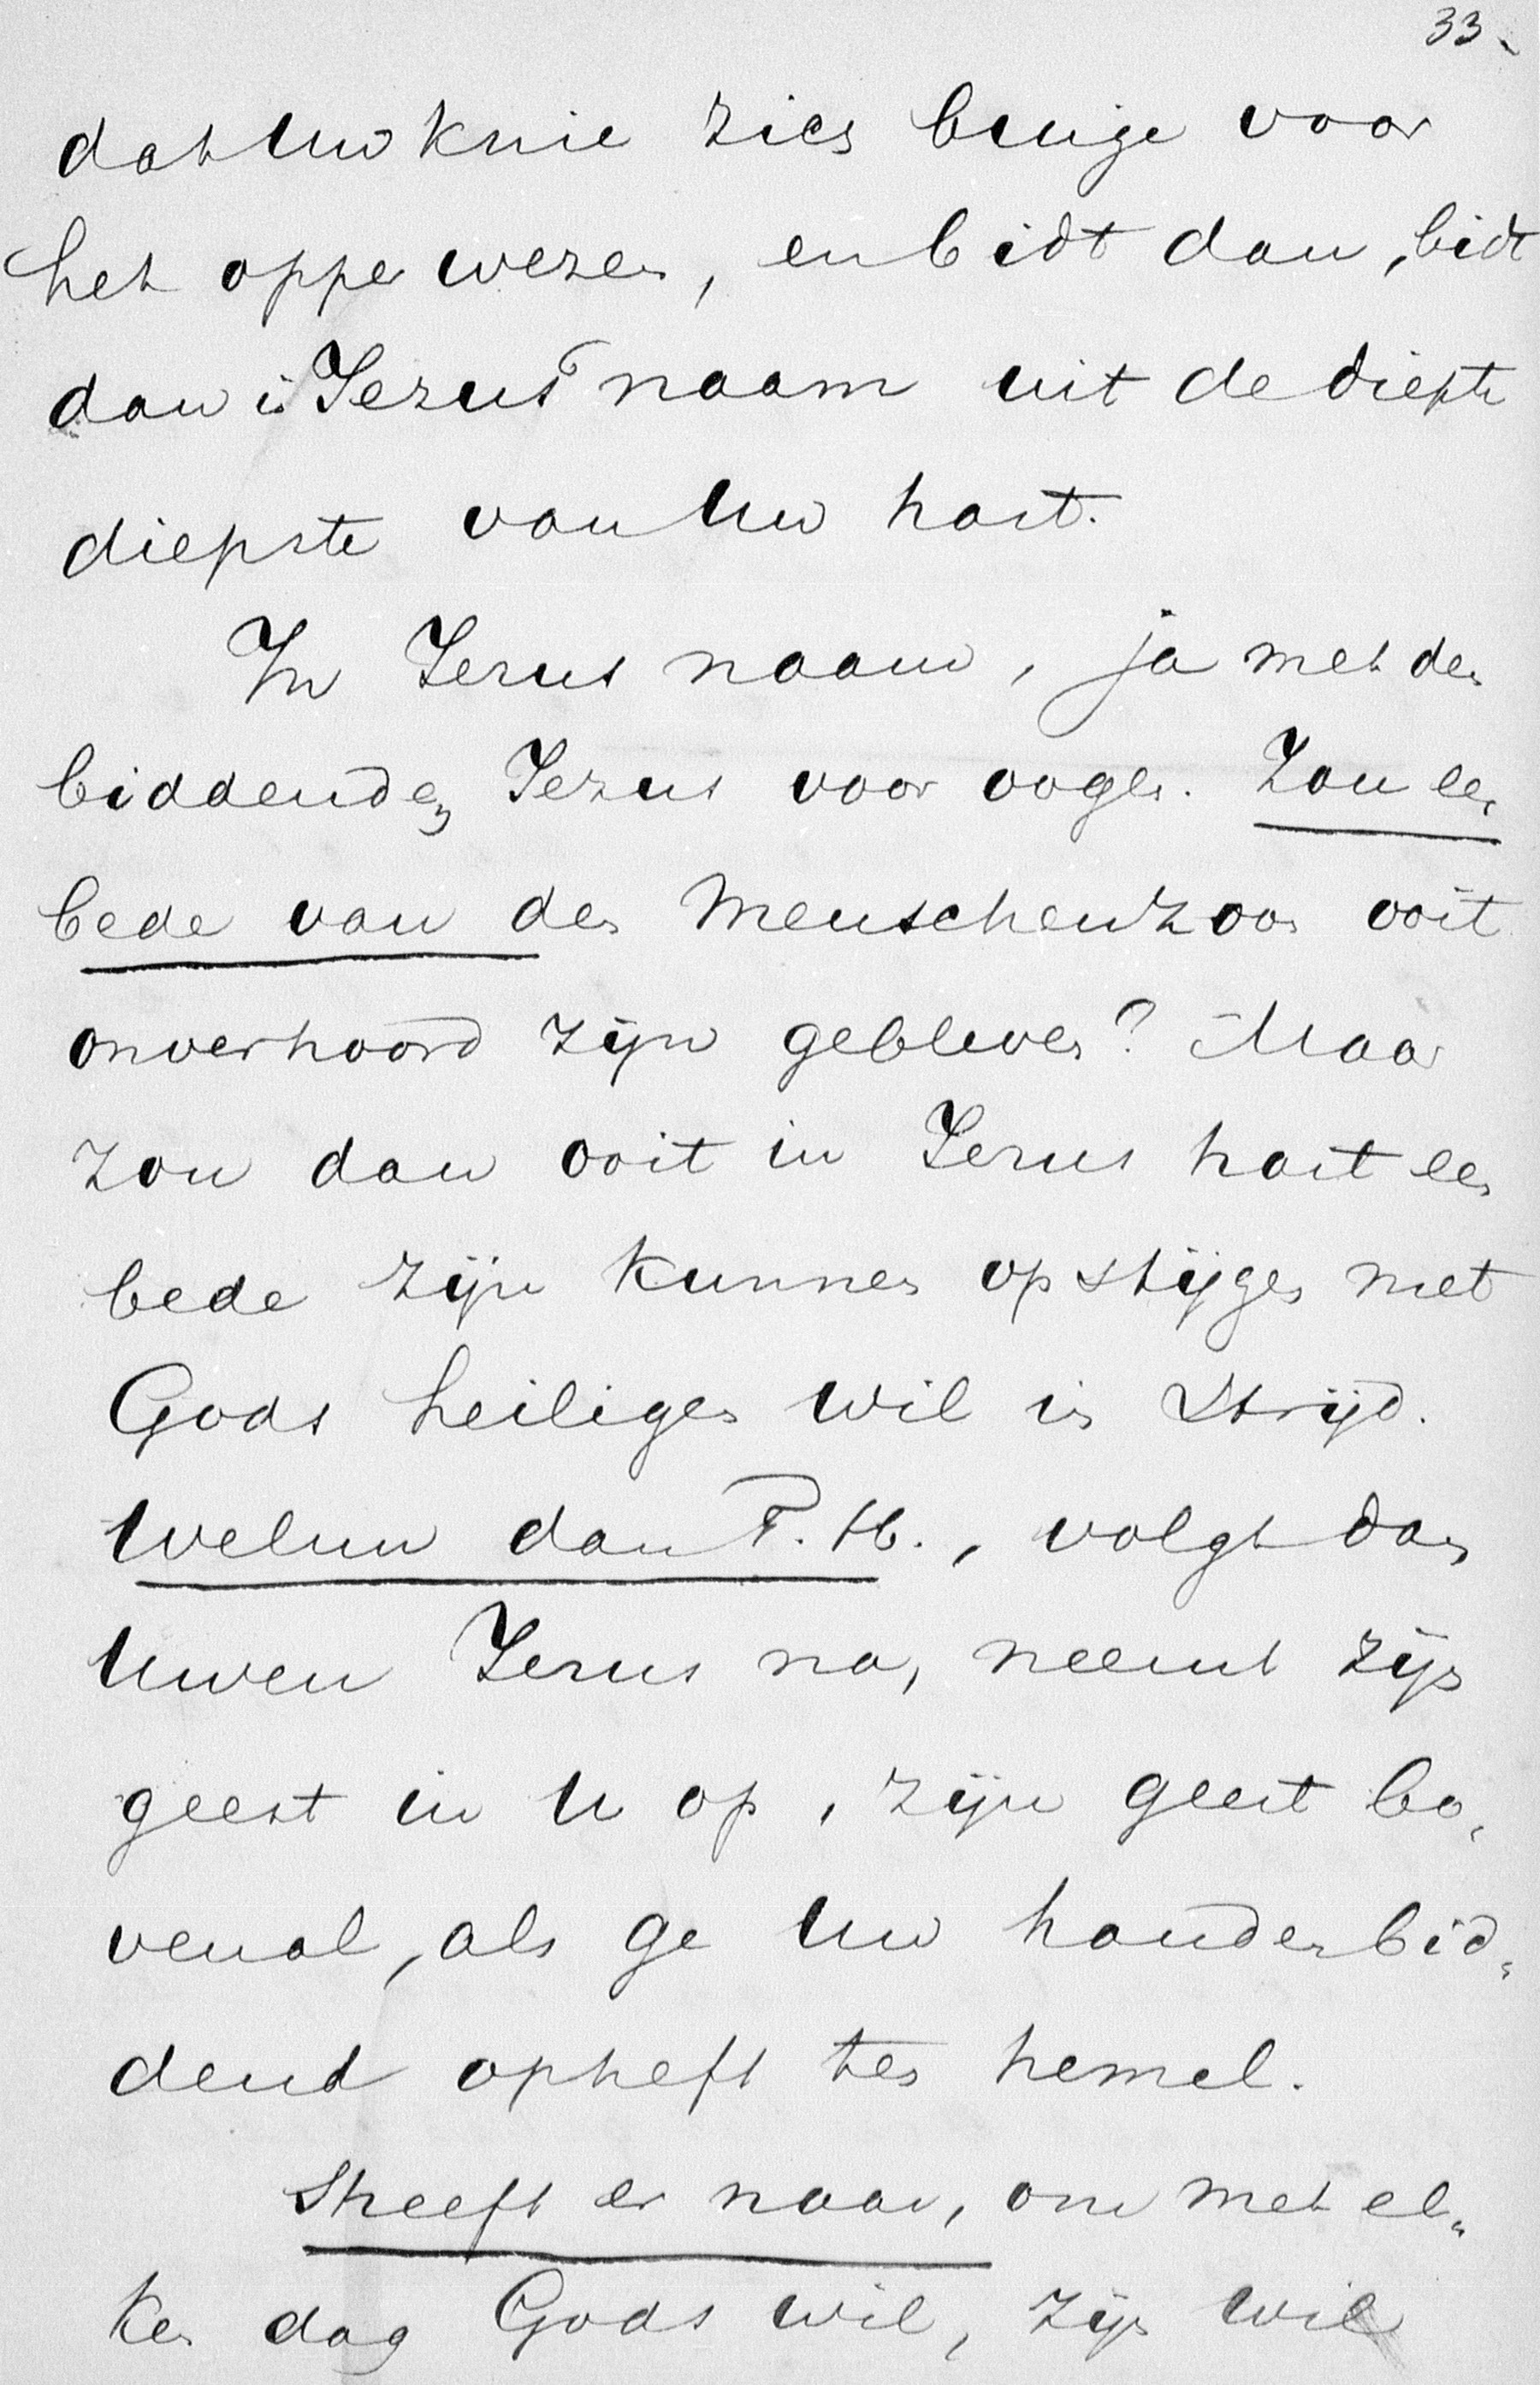 33.
dat Uw knie zich buige voor
het oppewezen, en bidt dan, bidt
dan in Jezus naam uit de diepte
diepste van Uw hart.
In Jezus naam, ja met den
biddenden Jezus voor oogen. Zou een
bede van den Menschenzoon ooit
onverhoord zijn gebleven? Maar
zou dan ooit in Jezus hart een
bede zijn kunnen opstijgen met
Gods heiligen wil in strijd.
Welnu dan T. H., volgt dan
Uwen Jezus na, neemt zijn
geest in U op, zijn geest bo„
venal, als ge Uw handen bid„
dend opheft ten hemel.
Streeft er naar, om met el„
ken dag Gods wil, zijn wil